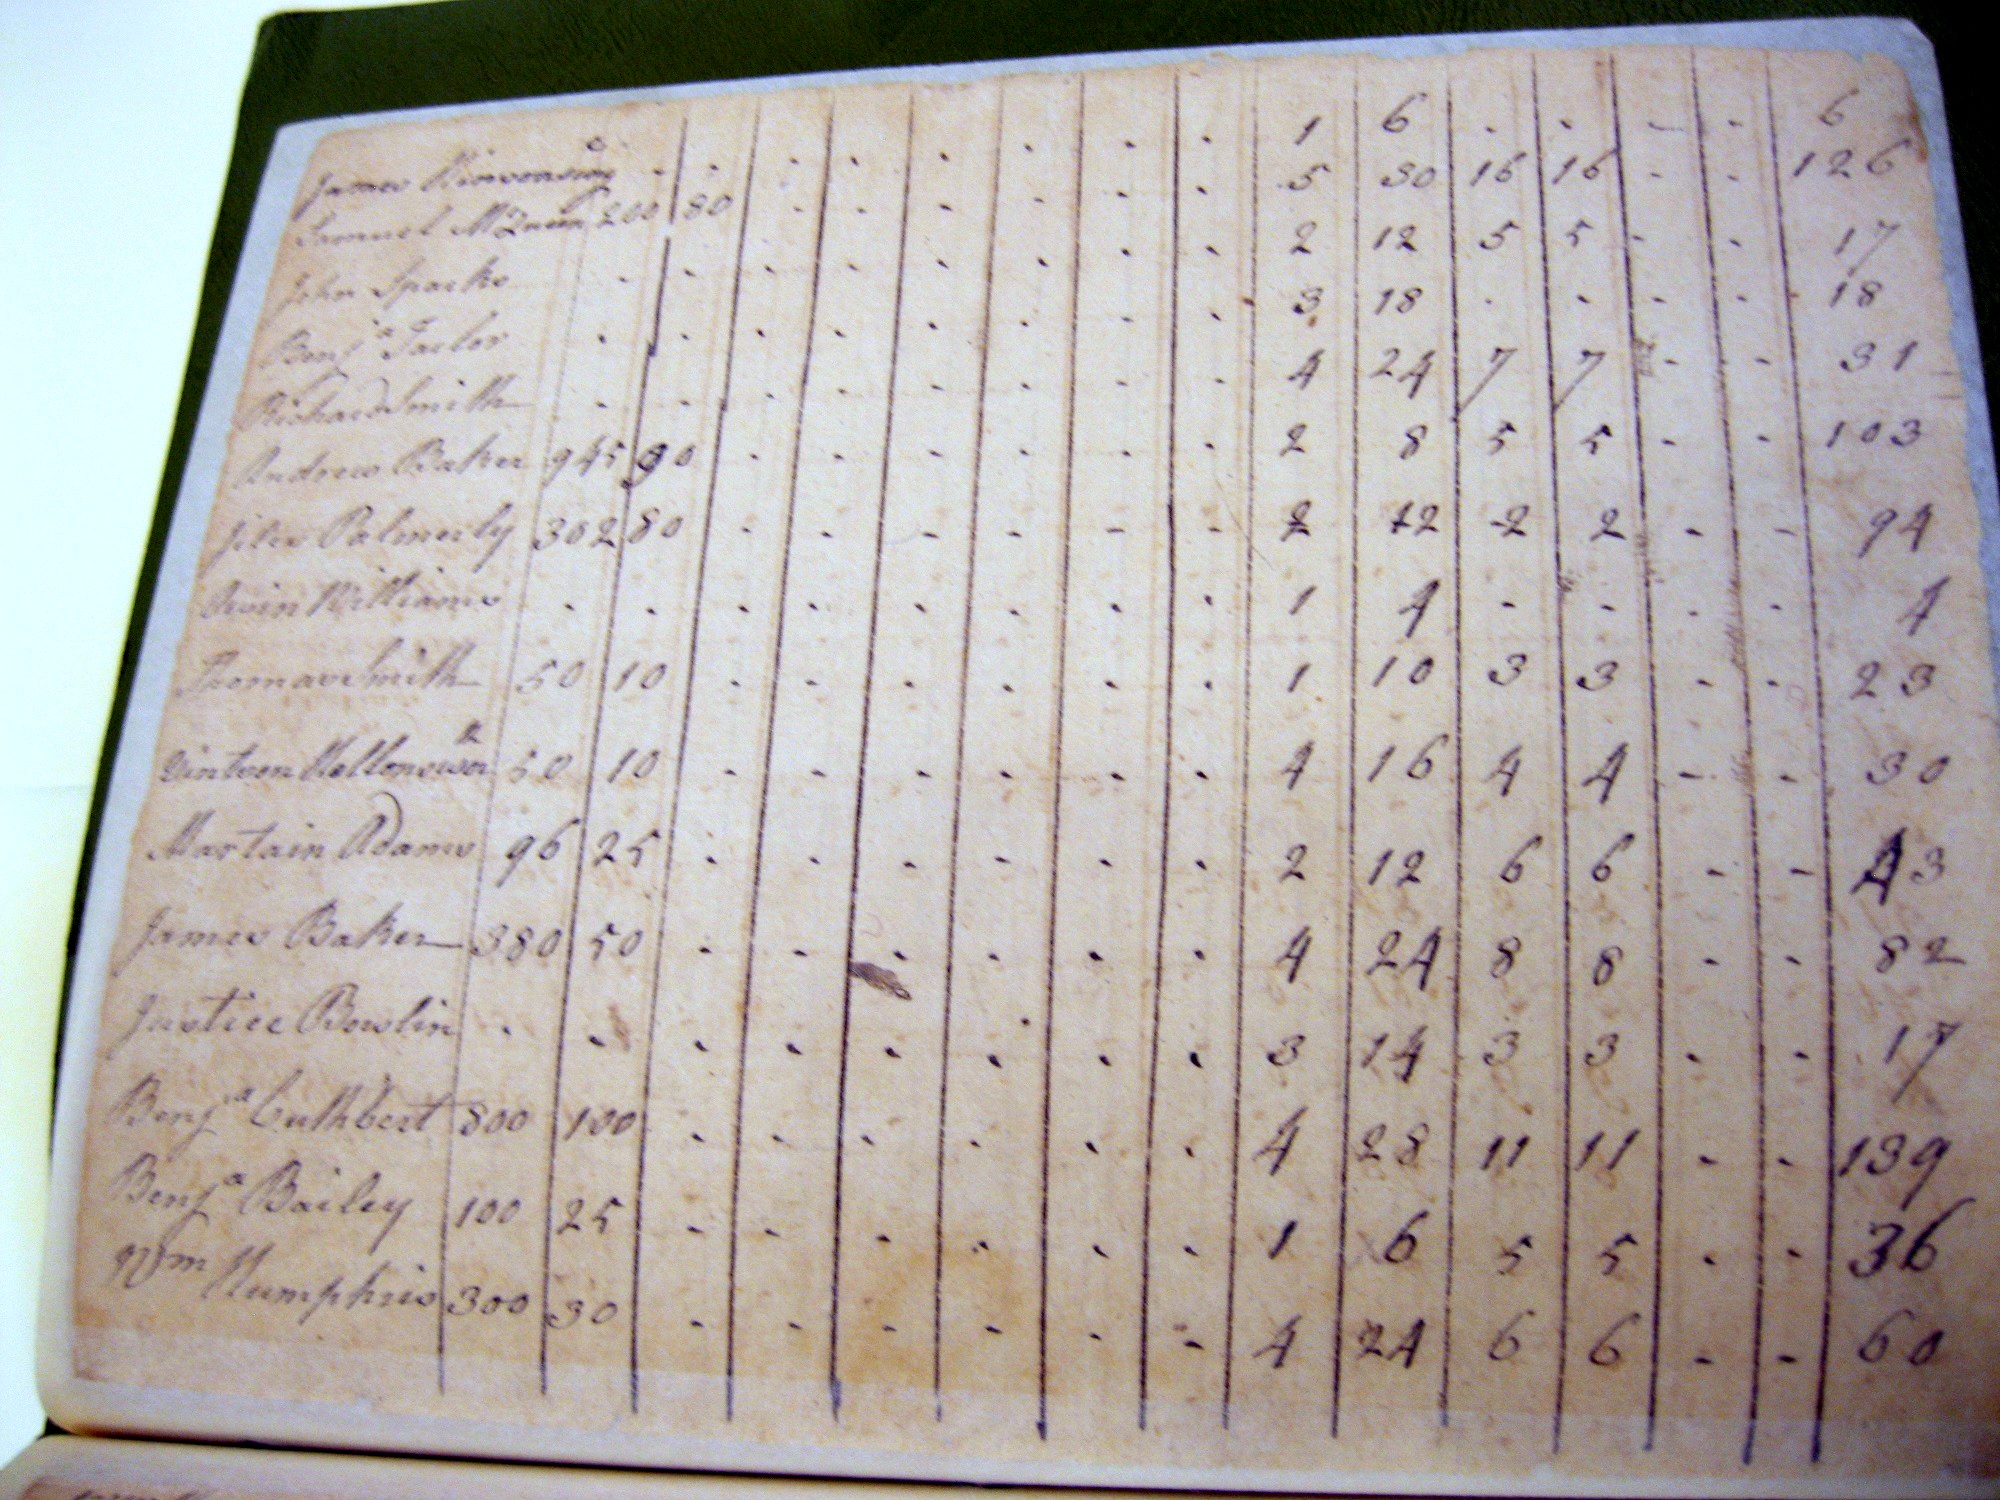 James . . . . . . . . 1 6 . . - - 6
Samuel McQueen 200 80 . . . . . . 5 30 16 16 - - 126
John Sparks . . . . . . . . 2 12 5 5 - - 17
Benja Tailor . . . . . . . . 3 18 . . - - 18
Richard Smith . . . . . . . . 4 24 7 7 - - 31
Andrew Baker 945 90 . . . . . . 2 8 5 5 - - 103
Jiles Palmerly 302 80 . . . . . . 2 12 2 2 - - 94
Williams . . . . . . . . 1 4 - - - - 4
Thomas Smith 50 10 . . . . . . 1 10 3 3 - - 23
50 10 . . . . . . 4 16 4 4 - - 30
Martain Adams 96 25 . . . . . . 2 12 6 6 - - 43
James Baker 380 50 . . . . . . 4 24 8 8 - - 82
Justice Bowlin . . . . . . . . 3 14 3 3 - - 17
Benja Cuthbert 800 100 . . . . . . 4 28 11 11 - - 139
Benja Bailey 100 25 . . . . . . 1 6 5 5 - - 36
Wm Humphris 300 30 . . . . . . 4 24 6 6 - - 60